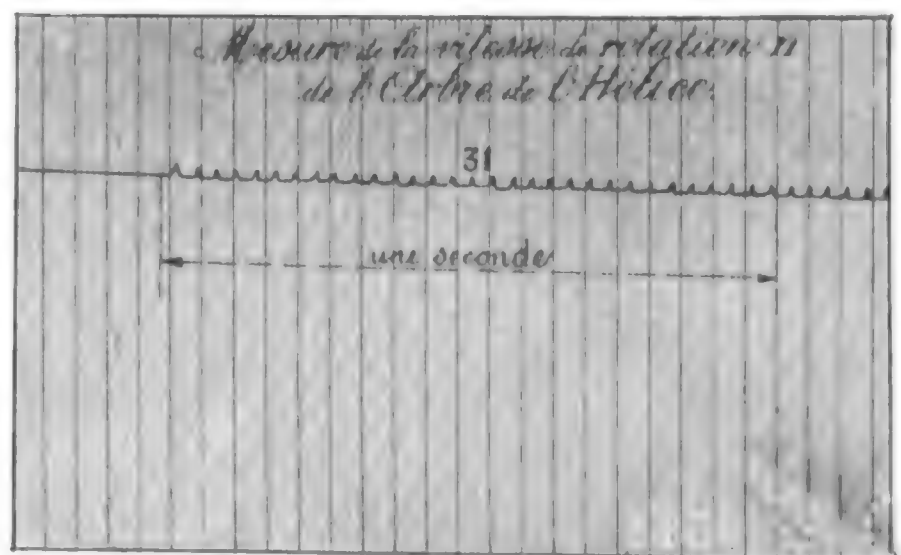 Mesure de la vitesse de rotation n
de l'Arbre de l'Hélice
31
une seconde